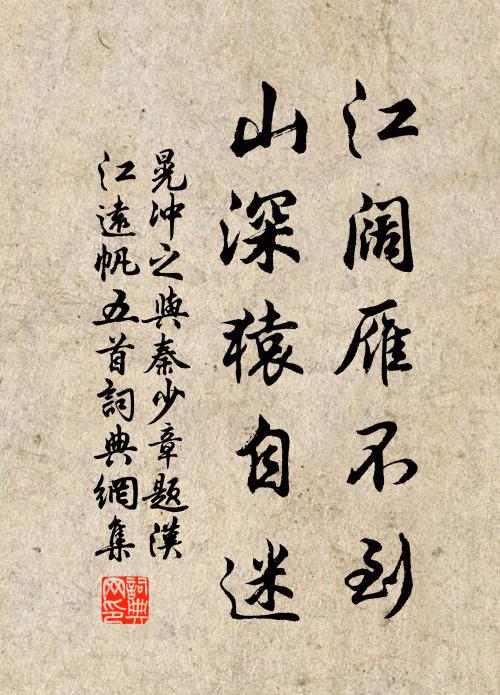 江阔雁不到
山深猿自迷
晁冲之與秦少章題漢
江遠帆五首詞典網集
詞典
网印